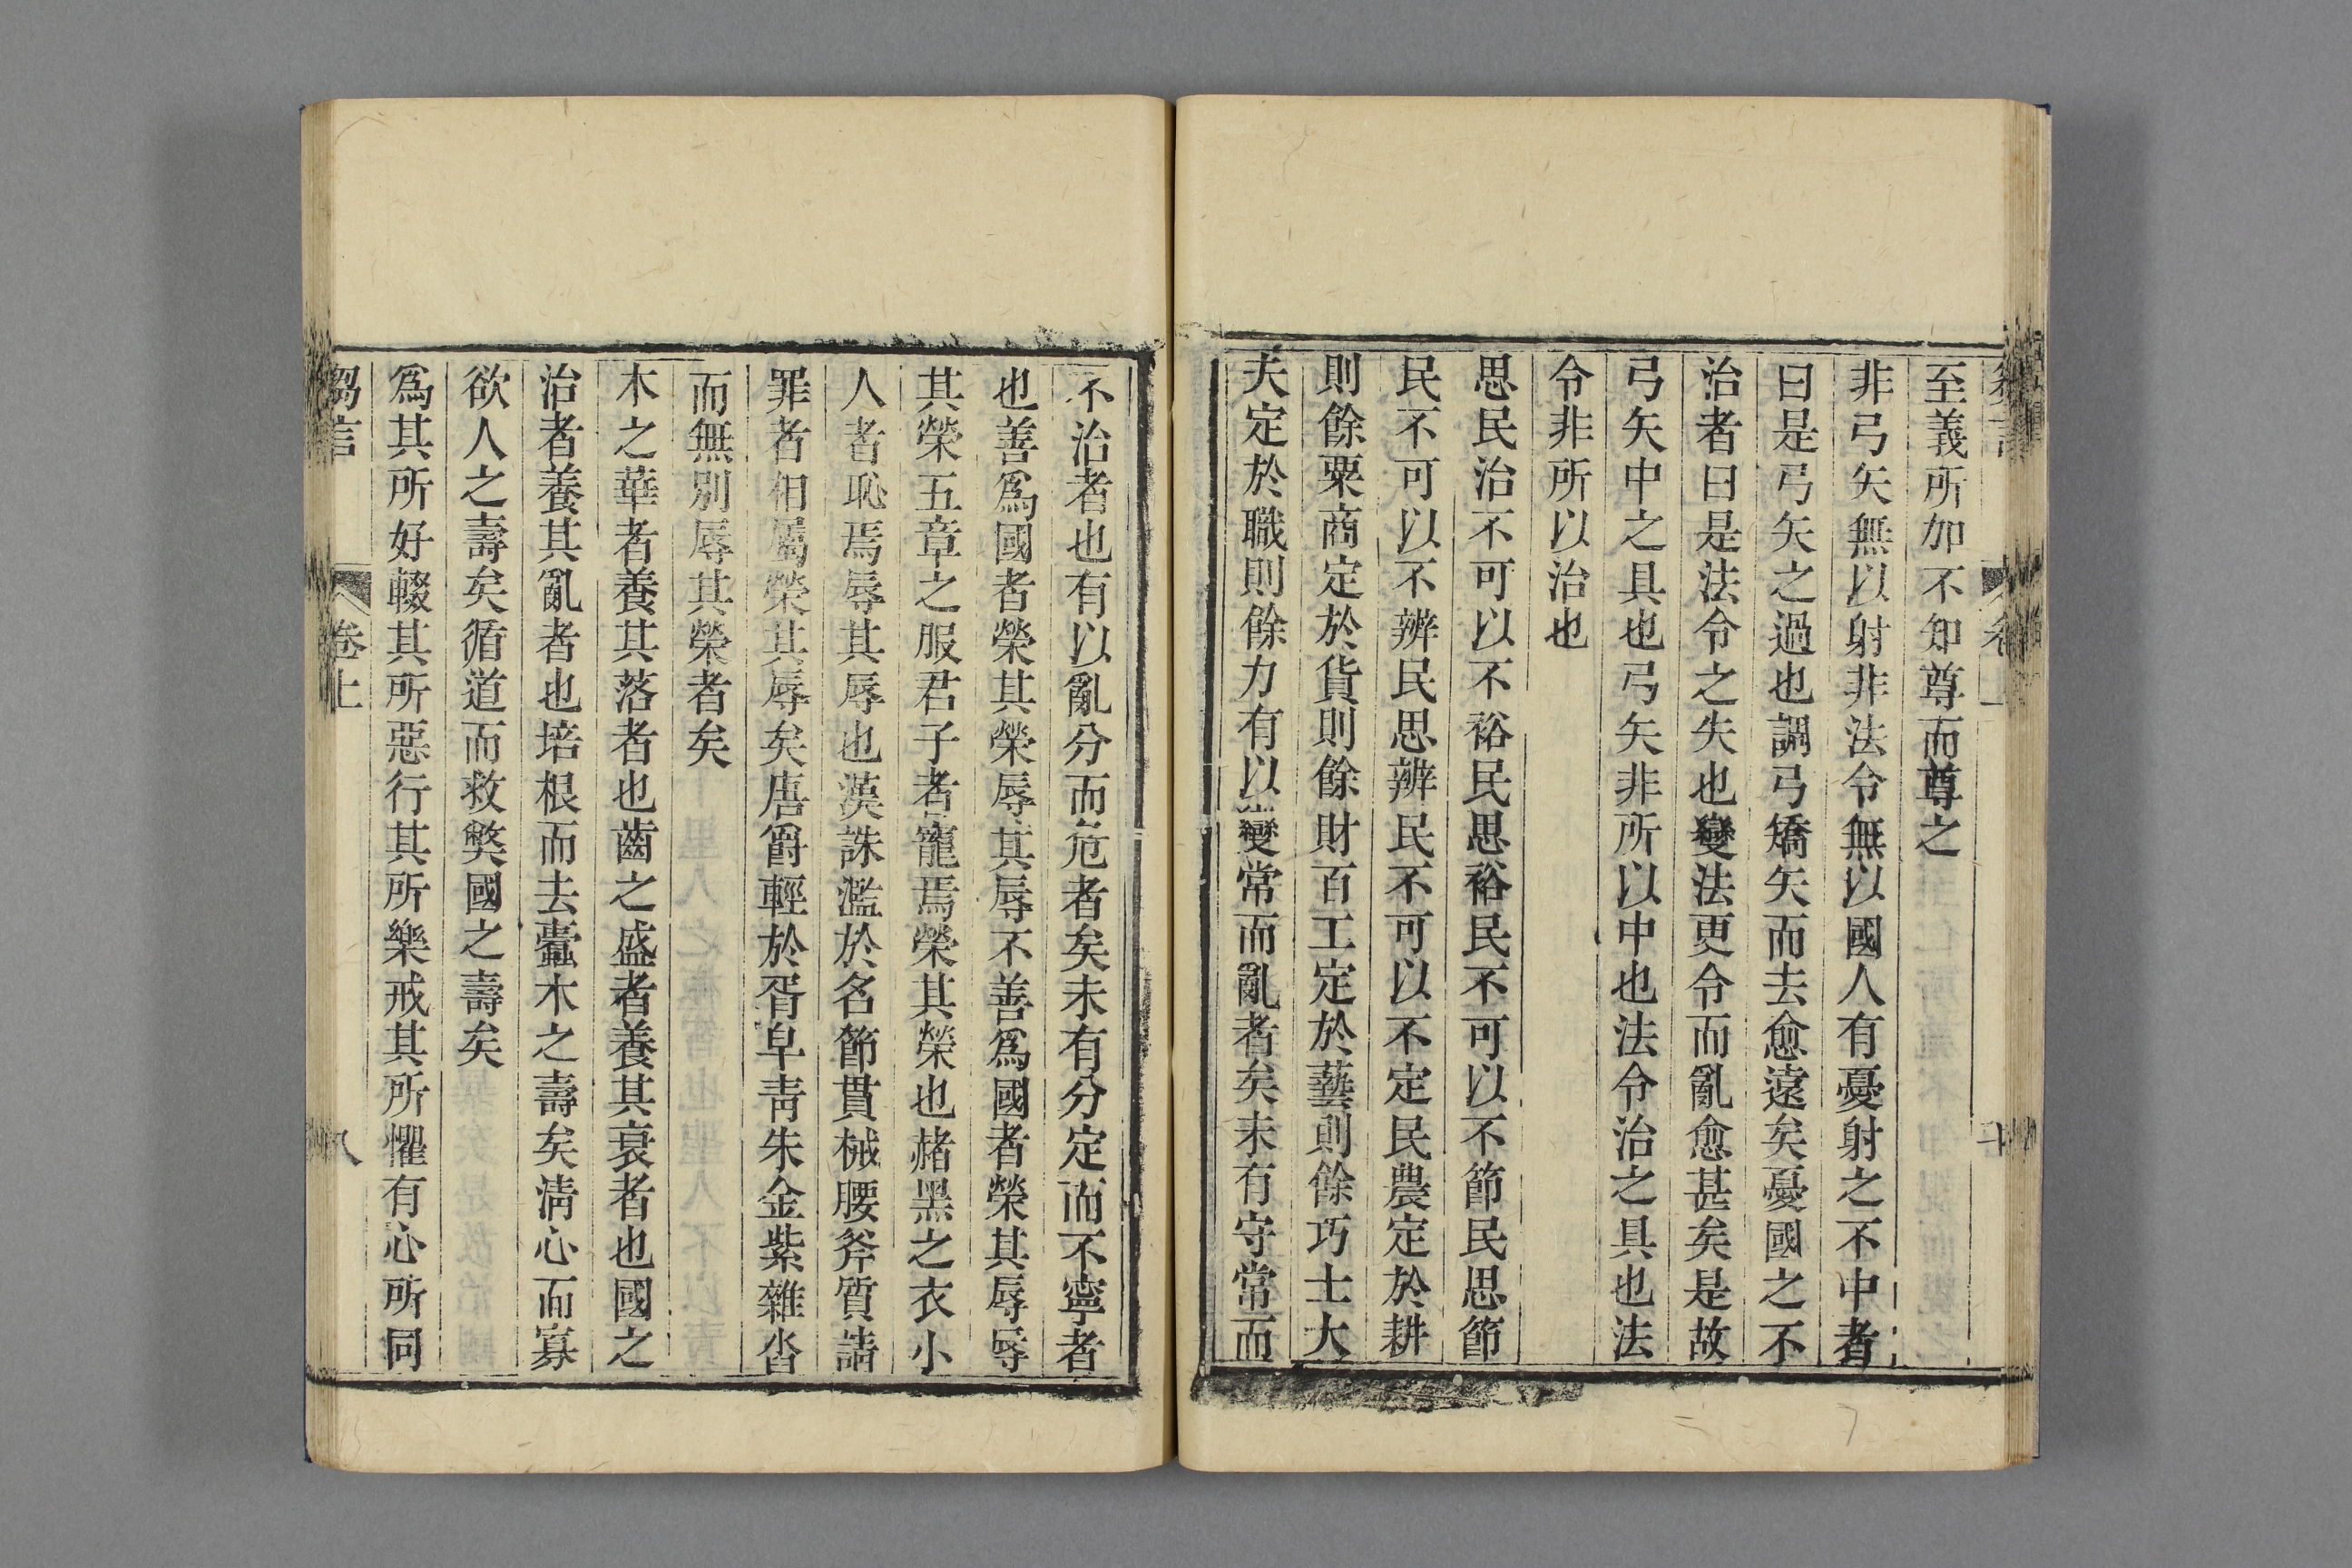 至義所加不知尊而尊之
非弓矢無以射非法令無以國人有憂射之不中者
曰是弓矢之過也調弓矯矢而去愈遠矣憂國之不
治者曰是法令之失也變法更令而亂愈甚矣是故
弓矢中之具也弓矢非所以中也法令治之具也法
令非所以治也
思民治不可以不裕民思裕民不可以不節民思節
民不可以不辨民思辨民不可以不定民農定於耕
則餘粟商定於貨則餘財百工定於藝則餘巧士大
夫定於職則餘力有以變常而亂者矣未有守常而
不治者也有以亂分而危者矣未有分定而不寧者
也善爲國者榮其榮辱其辱不善爲國者榮其辱辱
其榮五章之服君子者寵焉榮其榮也赭黑之衣小
人者恥焉辱其辱也漢誅濫於名節貫械腰斧質請
罪者相屬榮其辱矣唐爵輕於胥皁靑朱金紫雜沓
而無別辱其榮者矣
木之華者養其落者也齒之盛者養其衰者也國之
治者養其亂者也培根而去蠹木之壽矣淸心而寡
欲人之壽矣循道而救獘國之壽矣
爲其所好輟其所惡行其所樂戒其所懼有心所同
芻言 卷上 八